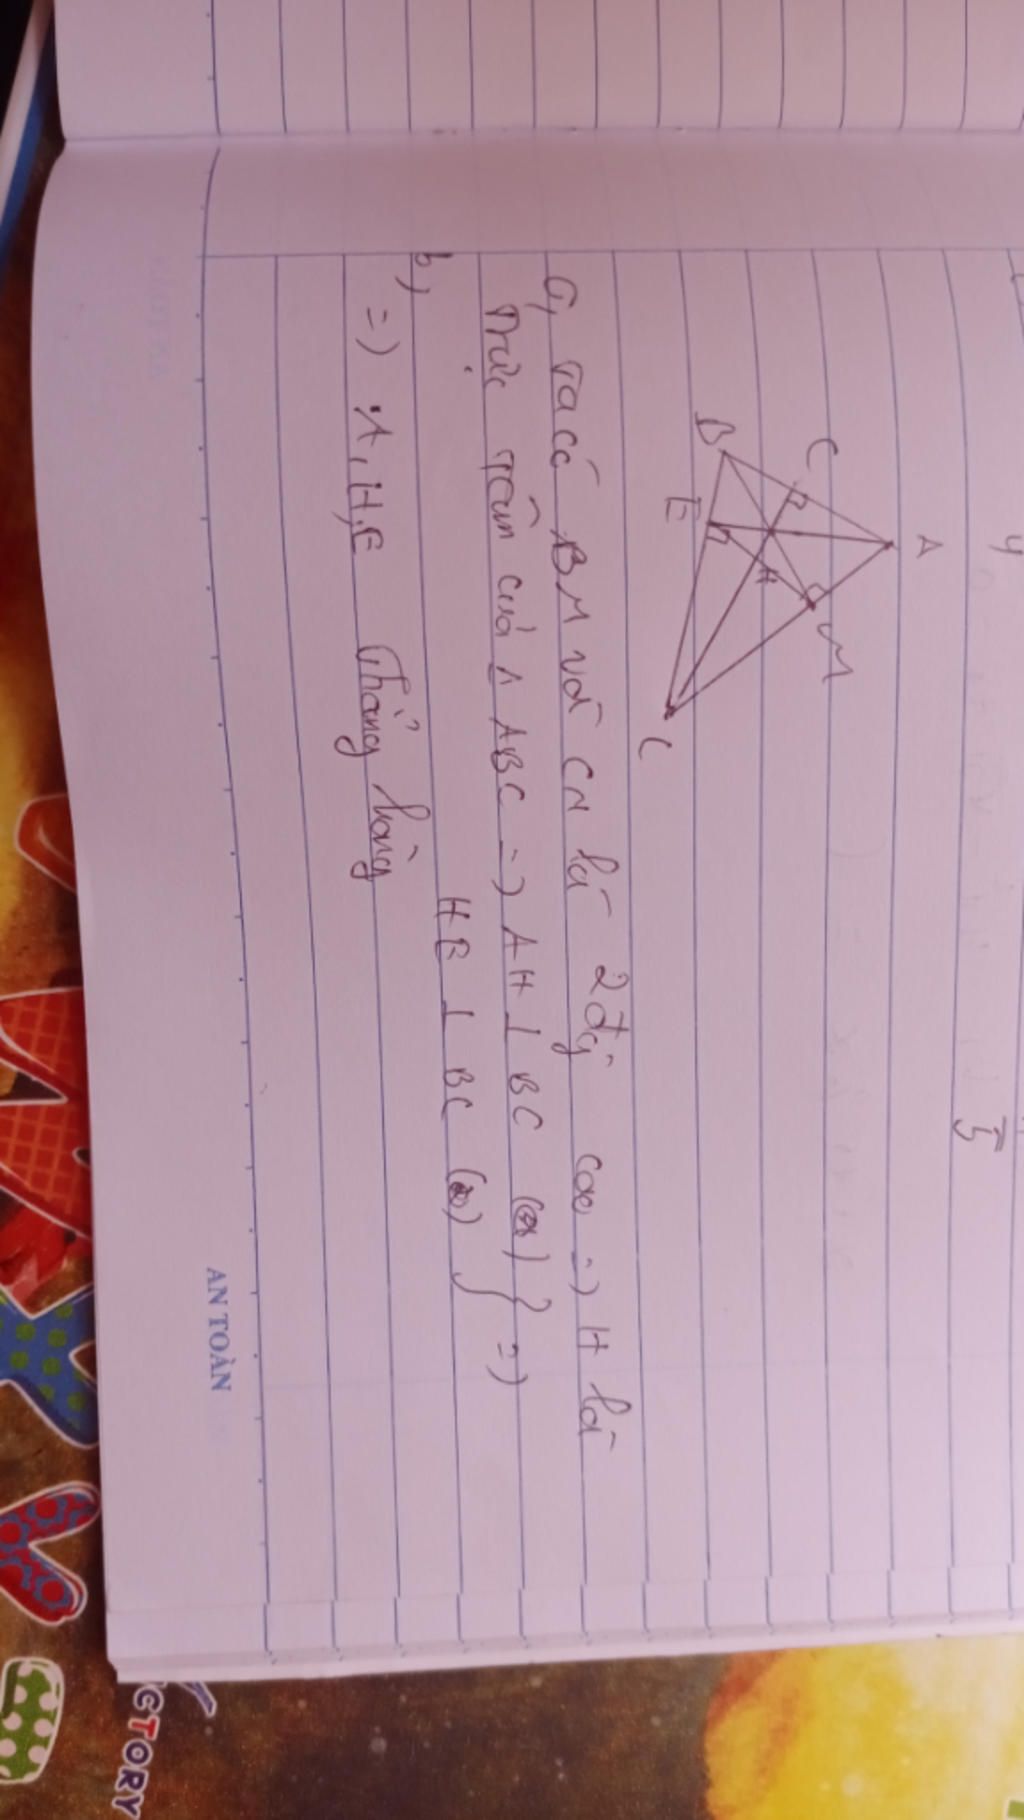 y
A
C
M
B
H
E
C
a, Ta có BM và CN là 2 đg cao =) H là
Trực tâm của Δ ABC =) AH ⊥ BC } =)
HE ⊥ BC
b,
=) A, H, E thẳng hàng
AN TOÀN
CTORY